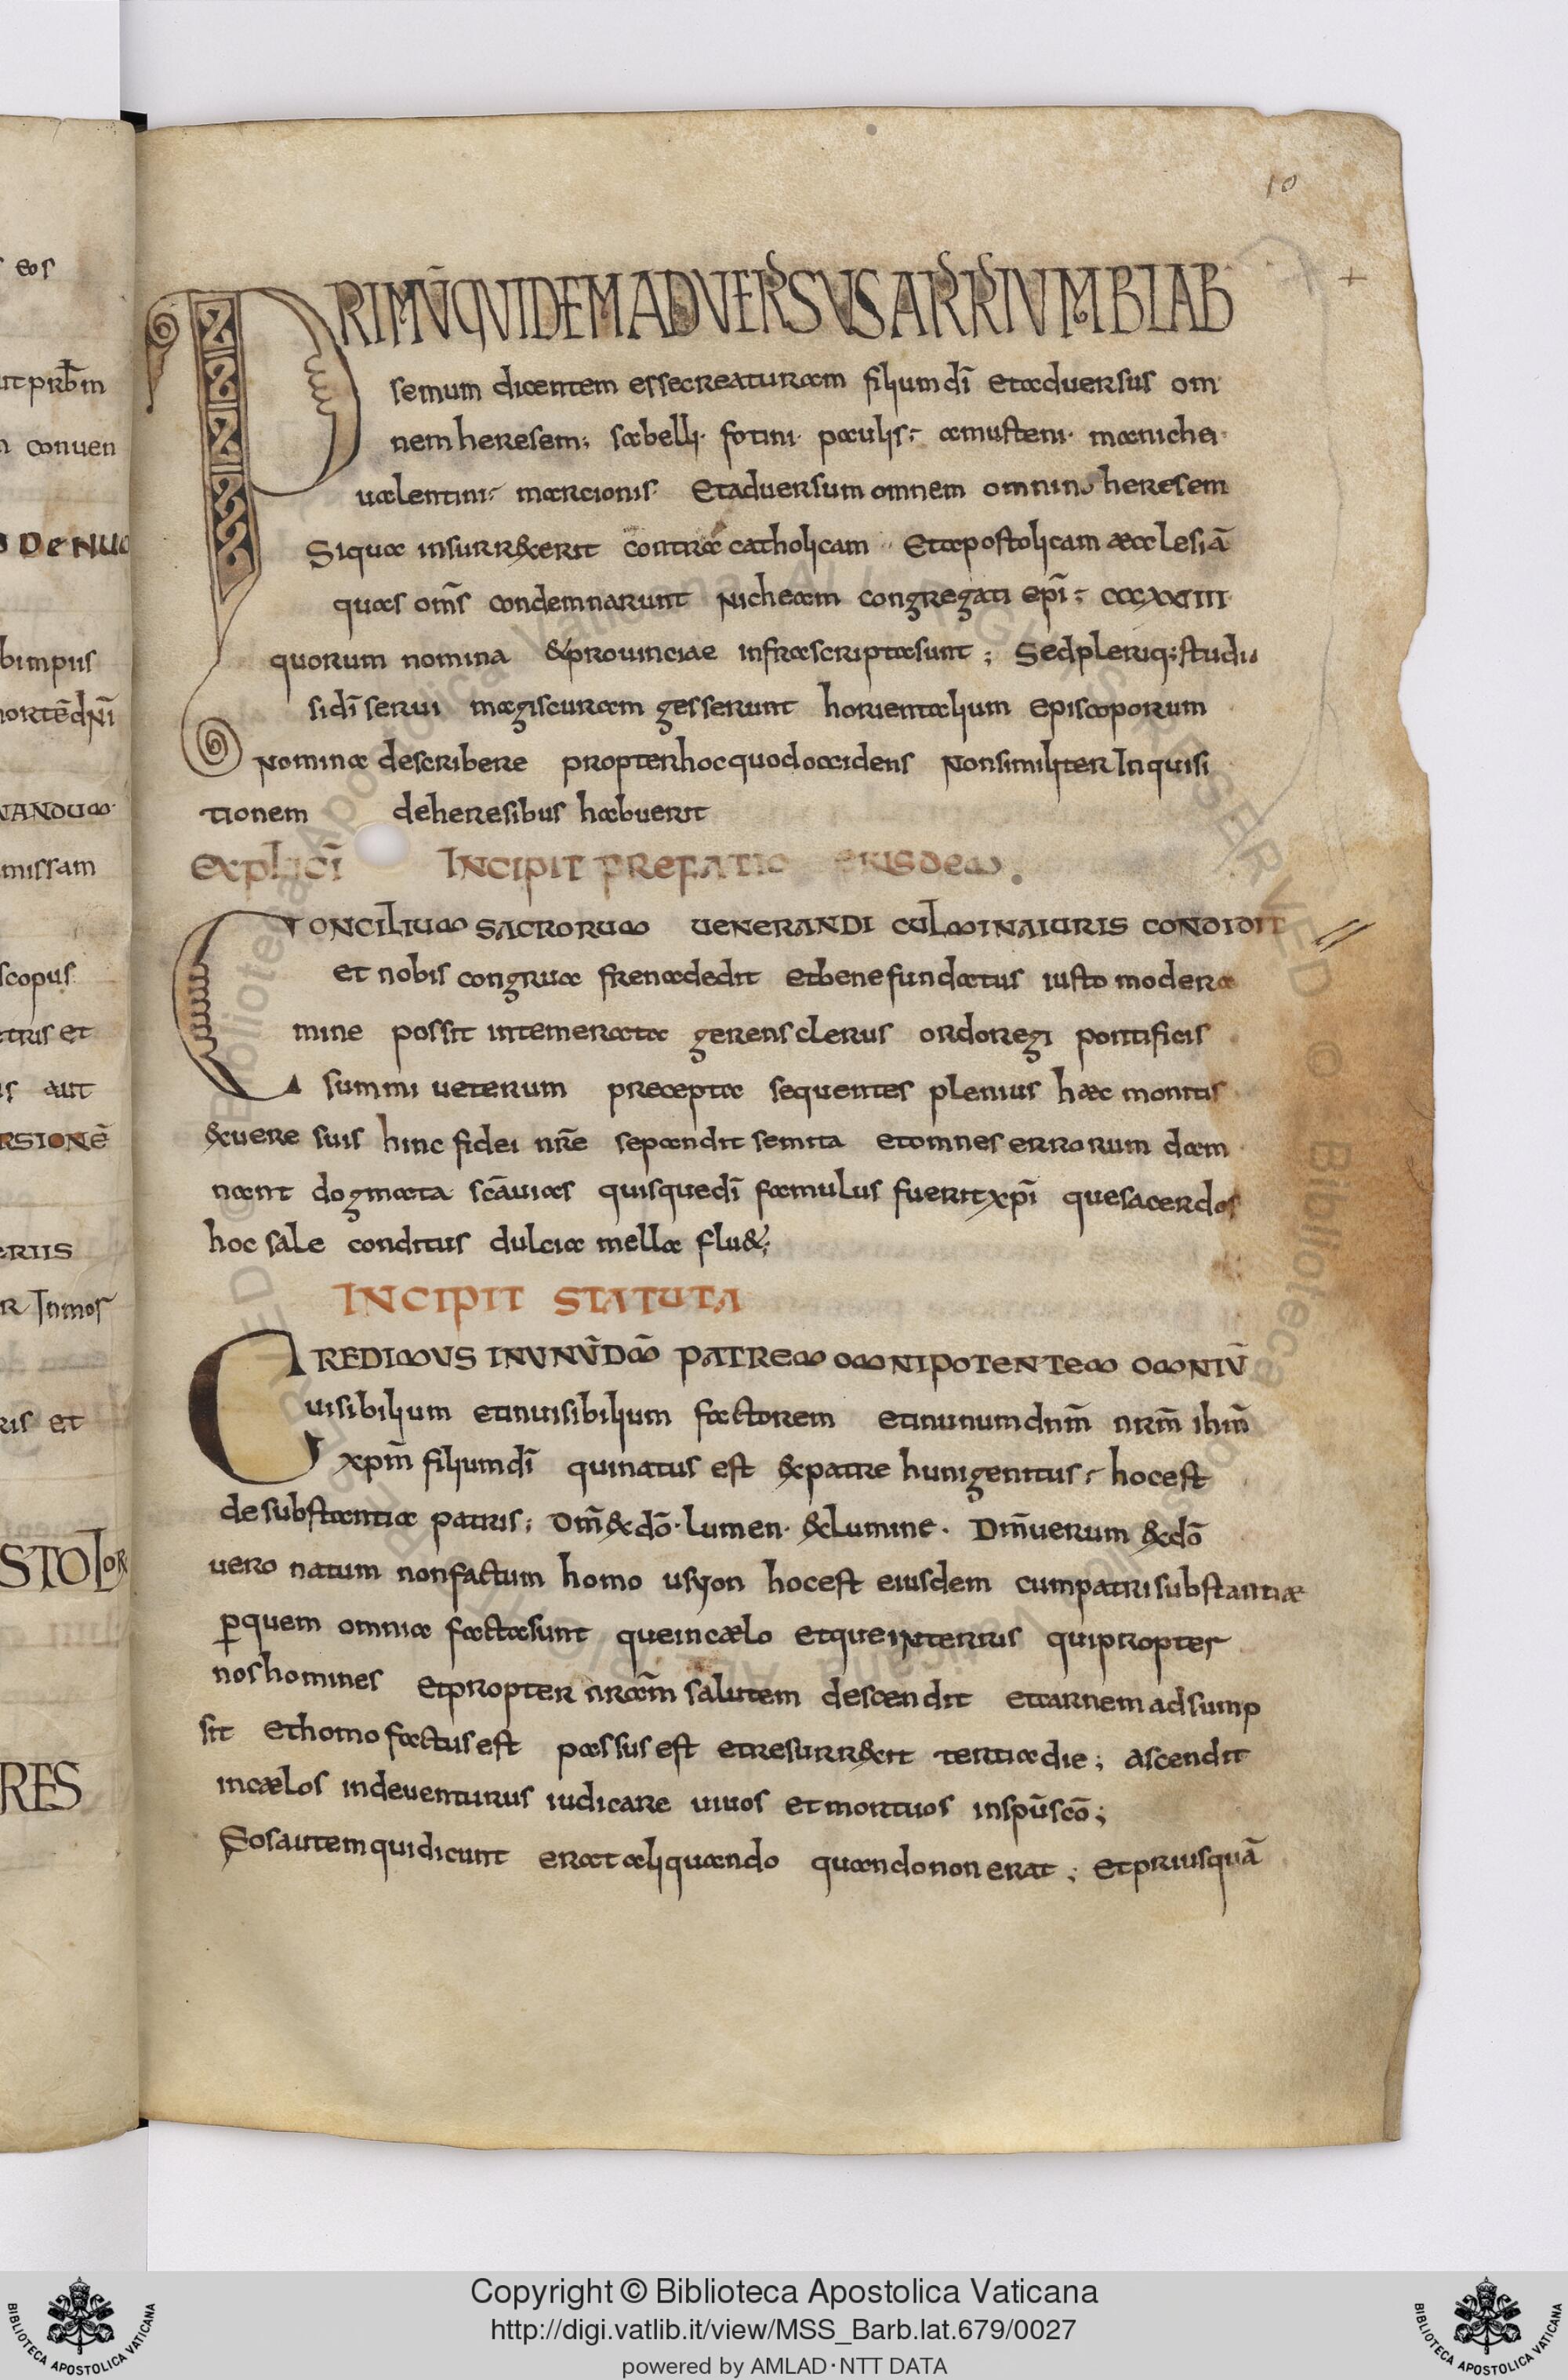 eos
utprb̄m
conuen
DeNuo
bimpus
mortēdn̄i
missam
scopus
tris et
is aut
RSIONĒ
ERIIS
R Inmos
ris et
STOLOR
RES
10
PRIMŪQUIDEMADVERSUSARRIUMBLAB
semum dicentem essecreaturam filiumdī etaduersus om
nemheresem; sabelli· fotini· paulis; amusteni· manichei·
ualentini; marcionis· Etaduersumomnem omnino heresem
Siqua insurr&xerit contra catholicam Etapostolicam æcclesiā
quas om̄s condemnarunt Nicheam congregati epī; cccxxiiii
quorum nomina &prouinciae infrascriptasunt; Sedpleriq;studii
sidī serui magiscuram gesserunt horientalium episcoporum
Nomina describere propterhocquodoccidens Nonsimiliter Inquisi
tionem deheresibus habuerit
Explicī INCIPIT PREFATIO EIUSDEM.
CONCILIUM SACRORUM UENERANDI CULMINAIURIS CONDIDIT
et nobis congrua frenadedit etbenefundatus iusto modera
mine possit intemerata gerensclerus ordoregi pontificis
summi ueterum precepta sequentes plenius hæc monitis
&uere suis hinc fidei nr̄e sepandit semita etomnes errorum dam
nant dogmata scāuias quisquedī famulus fueritxpī quesacerdos
hoc sale conditus dulcia mella flu&;
INCIPIT STATUTA
CREDIMUS INUNŪDM̄ PATREM OMNIPOTENTEM OMNIŪ
uisibilium etinuisibilium factorem etinunumdnm̄ nrm̄ ihm̄
xpm̄ filiumdī quinatus est &patre hunigenitus; hocest
desubstantia patris; Dm̄&dō·lumen·&lumine. Dm̄uerum &dō
uero natum nonfactum homo usyon hocest eiusdem cumpatrisubstantiæ
p̱quem omnia factasunt queincælo etqueinterris quipropter
noshomines etpropter nram̄ salutem descendit etcarnemadsump
sit ethomofactusest passus est etresurr&xit tertiadie; ascendit
incælos indeuenturus iudicare uiuos etmortuos inspūscō;
Eosautemquidicunt erataliquando quandononerat; etpriusquā
Copyright © Biblioteca Apostolica Vaticana
http://digi.vatlib.it/view/MSS_Barb.lat.679/0027
powered by AMLAD·NTT DATA
BIBLIOTECA APOSTOLICA VATICANA
BIBLIOTECA APOSTOLICA VATICANA